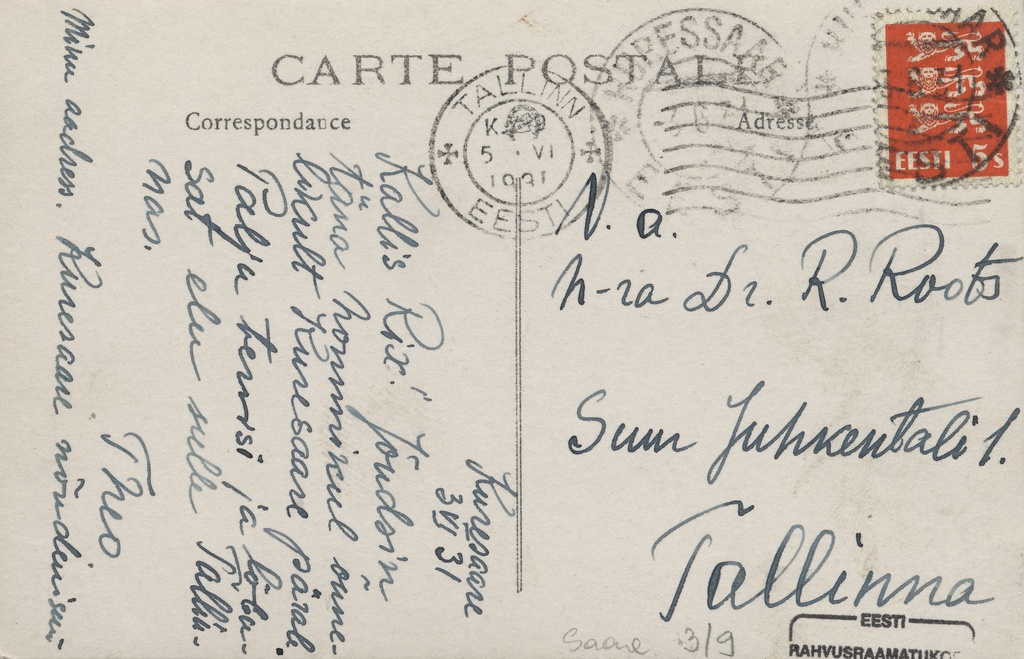 CARTE POSTALE
Correspondance
Adresse
TALLINN
5 VI
EESTI
KURESSAAR
EESTI 5 s
Kuresaare
3 VI 31
Kallis Rix! Jõudsin
täna hommikul õnne-
likult Kuresaare pärale
Palju tervisi ja lõbu-
sat elu sulle Tallin-
nas.
Theo
Minu aadress. Kuresaare nõudmiseni
N. a.
h-ra Dr. R. Roots
Suur Juhkentali 1.
Tallinna
Saare 3/9
EESTI
RAHVUSRAAMATUKO